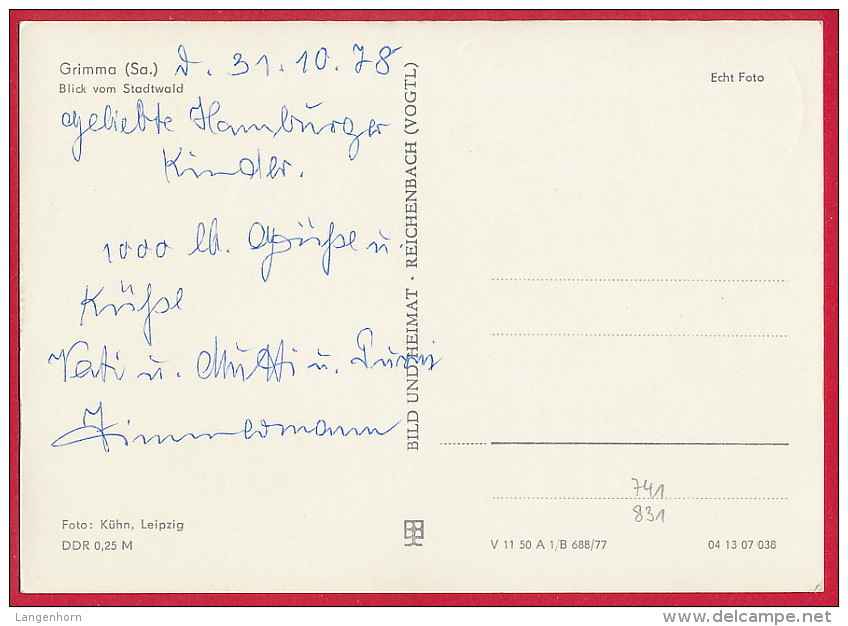 Grimma (Sa.) d. 31.10.78
Blick vom Stadtwald
geliebte Hamburger
Kinder.
1000 lb. Grüße u.
Küße
Vati u. Mutti u.
Zimmermann
Foto: Kühn, Leipzig
DDR 0,25 M
BILD UND HEIMAT · REICHENBACH (VOGTL)
Echt Foto
741
831
V 11 50 A 1/B 688/77 04 13 07 038
Langenhorn
www.delcampe.net